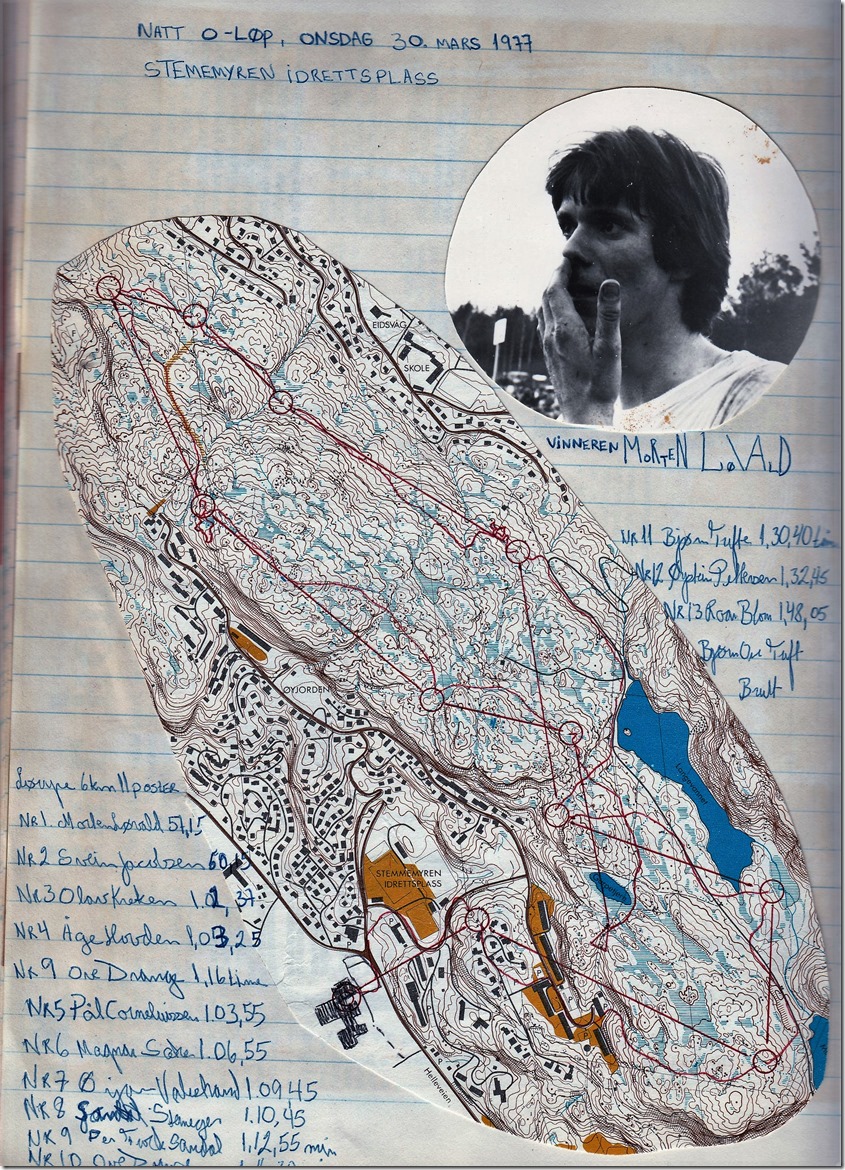 NATT O-LØP, ONSDAG 30. MARS 1977
STEMEMYREN IDRETTSPLASS
EIDSVÅG
SKOLE
VINNEREN MORTEN LØVALD
NR 11 Bjørn Tufte 1,30,40
NR 12 Øystein Pettersen 1,32,45
NR 13 Roar Blom 1,48,05
Bjørn Ove Tuft
Brutt
ØYJORDEN
Løype 6 km 11 poster
NR 1 Morten Løvald 57,15
NR 2 Svein Jacobsen
NR 3 Olav Kreken
NR 4 Åge Hovden 1,03,25
NR 9 Ove Drange 1,16 time
NR 5 Pål Corneliussen 1.03,55
NR 6 Magnar 1.06,55
NR 7 1.09 45
NR 8 1.10,45
NR 9 Per Sandal 1,12,55 min
NR 10 Ove
STEMMEMYREN
IDRETTSPLASS
Helleveien
P
P